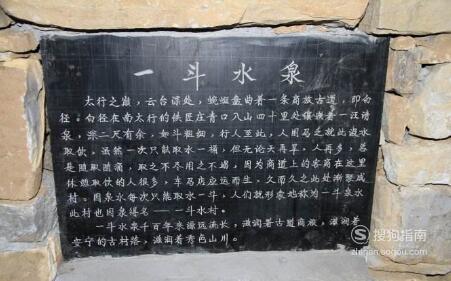 一斗水泉
太行之巅，云台深处，蜿蜒盘曲着一条商旅古道，即白
径。白径在南太行的铁匠庄青口入山四十里处镶嵌着一汪清
泉，深二尺有余，如斗粗细，行人至此，人困马乏就此汲水
取饮，虽然一次只能取水一桶，但无论天再旱，人再多，总
是随取随涌，取之不尽用之不竭，因为商道上的客商在这里
休憩取饮的人很多，车马店应运而生，久而久之此处渐聚成
村。因泉水每次只能取水一斗，人们就形象地称为一斗泉水
此村也因泉得名——一斗水村。
一斗水泉千百年来源远流长，滋润着古道商旅，滋润着
安宁的古村落，滋润着秀色山川。
搜狗指南
zhinan.sogou.com